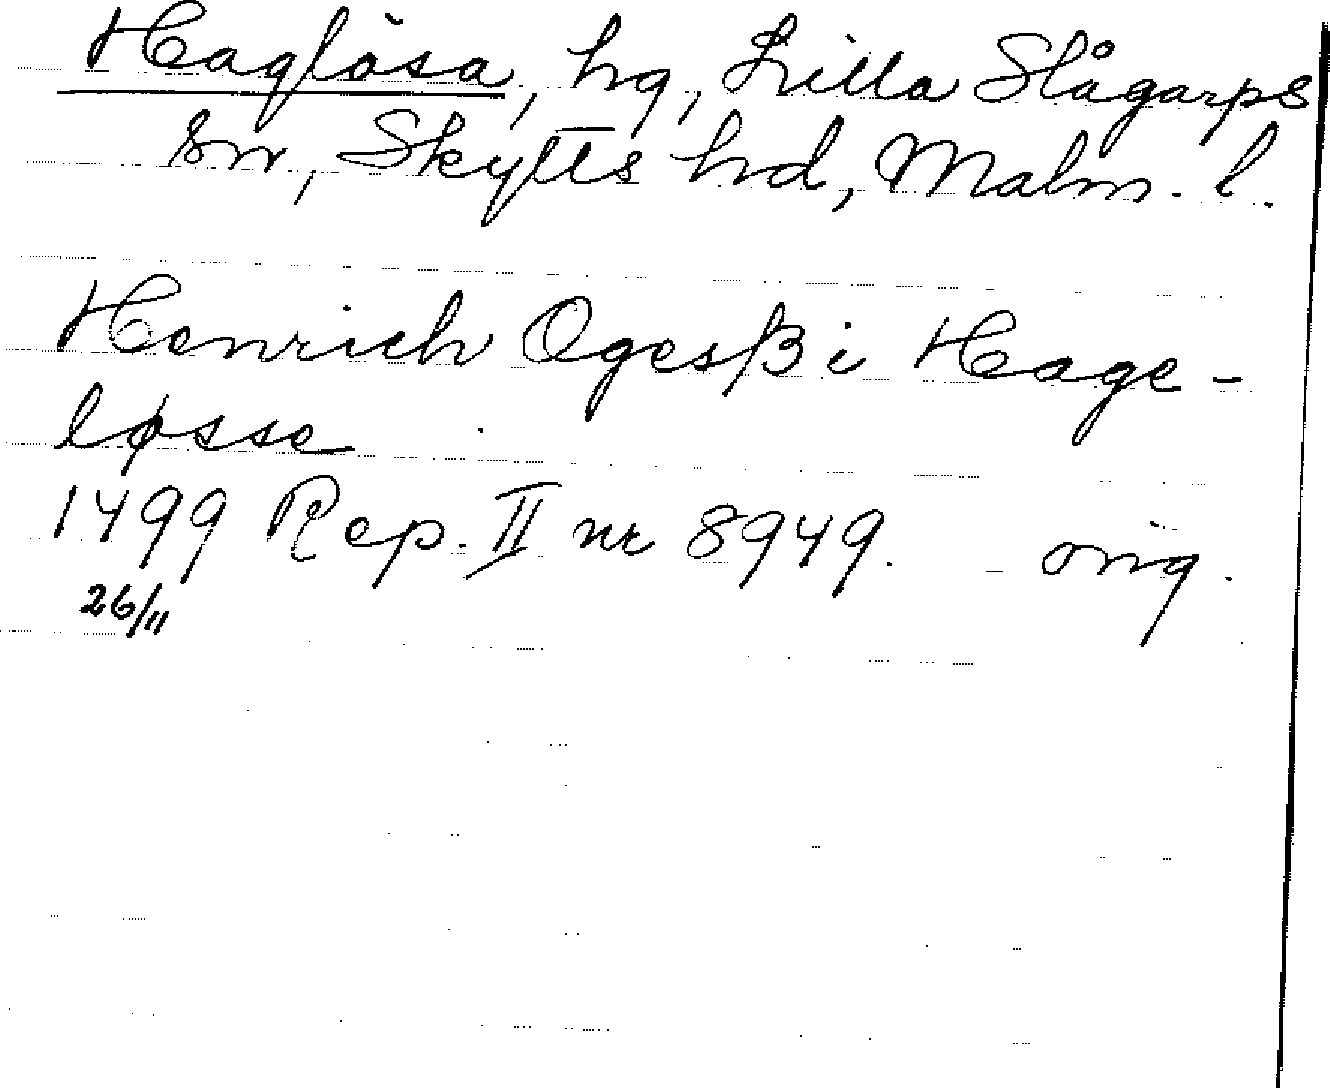 Haglösa, hg, Lilla Slågarps
sn, Skytts hd, Malm. l.
Henrich Ogesβ i Hage-
løsse
1499 Rep. II nr 8949. orig.
26/11